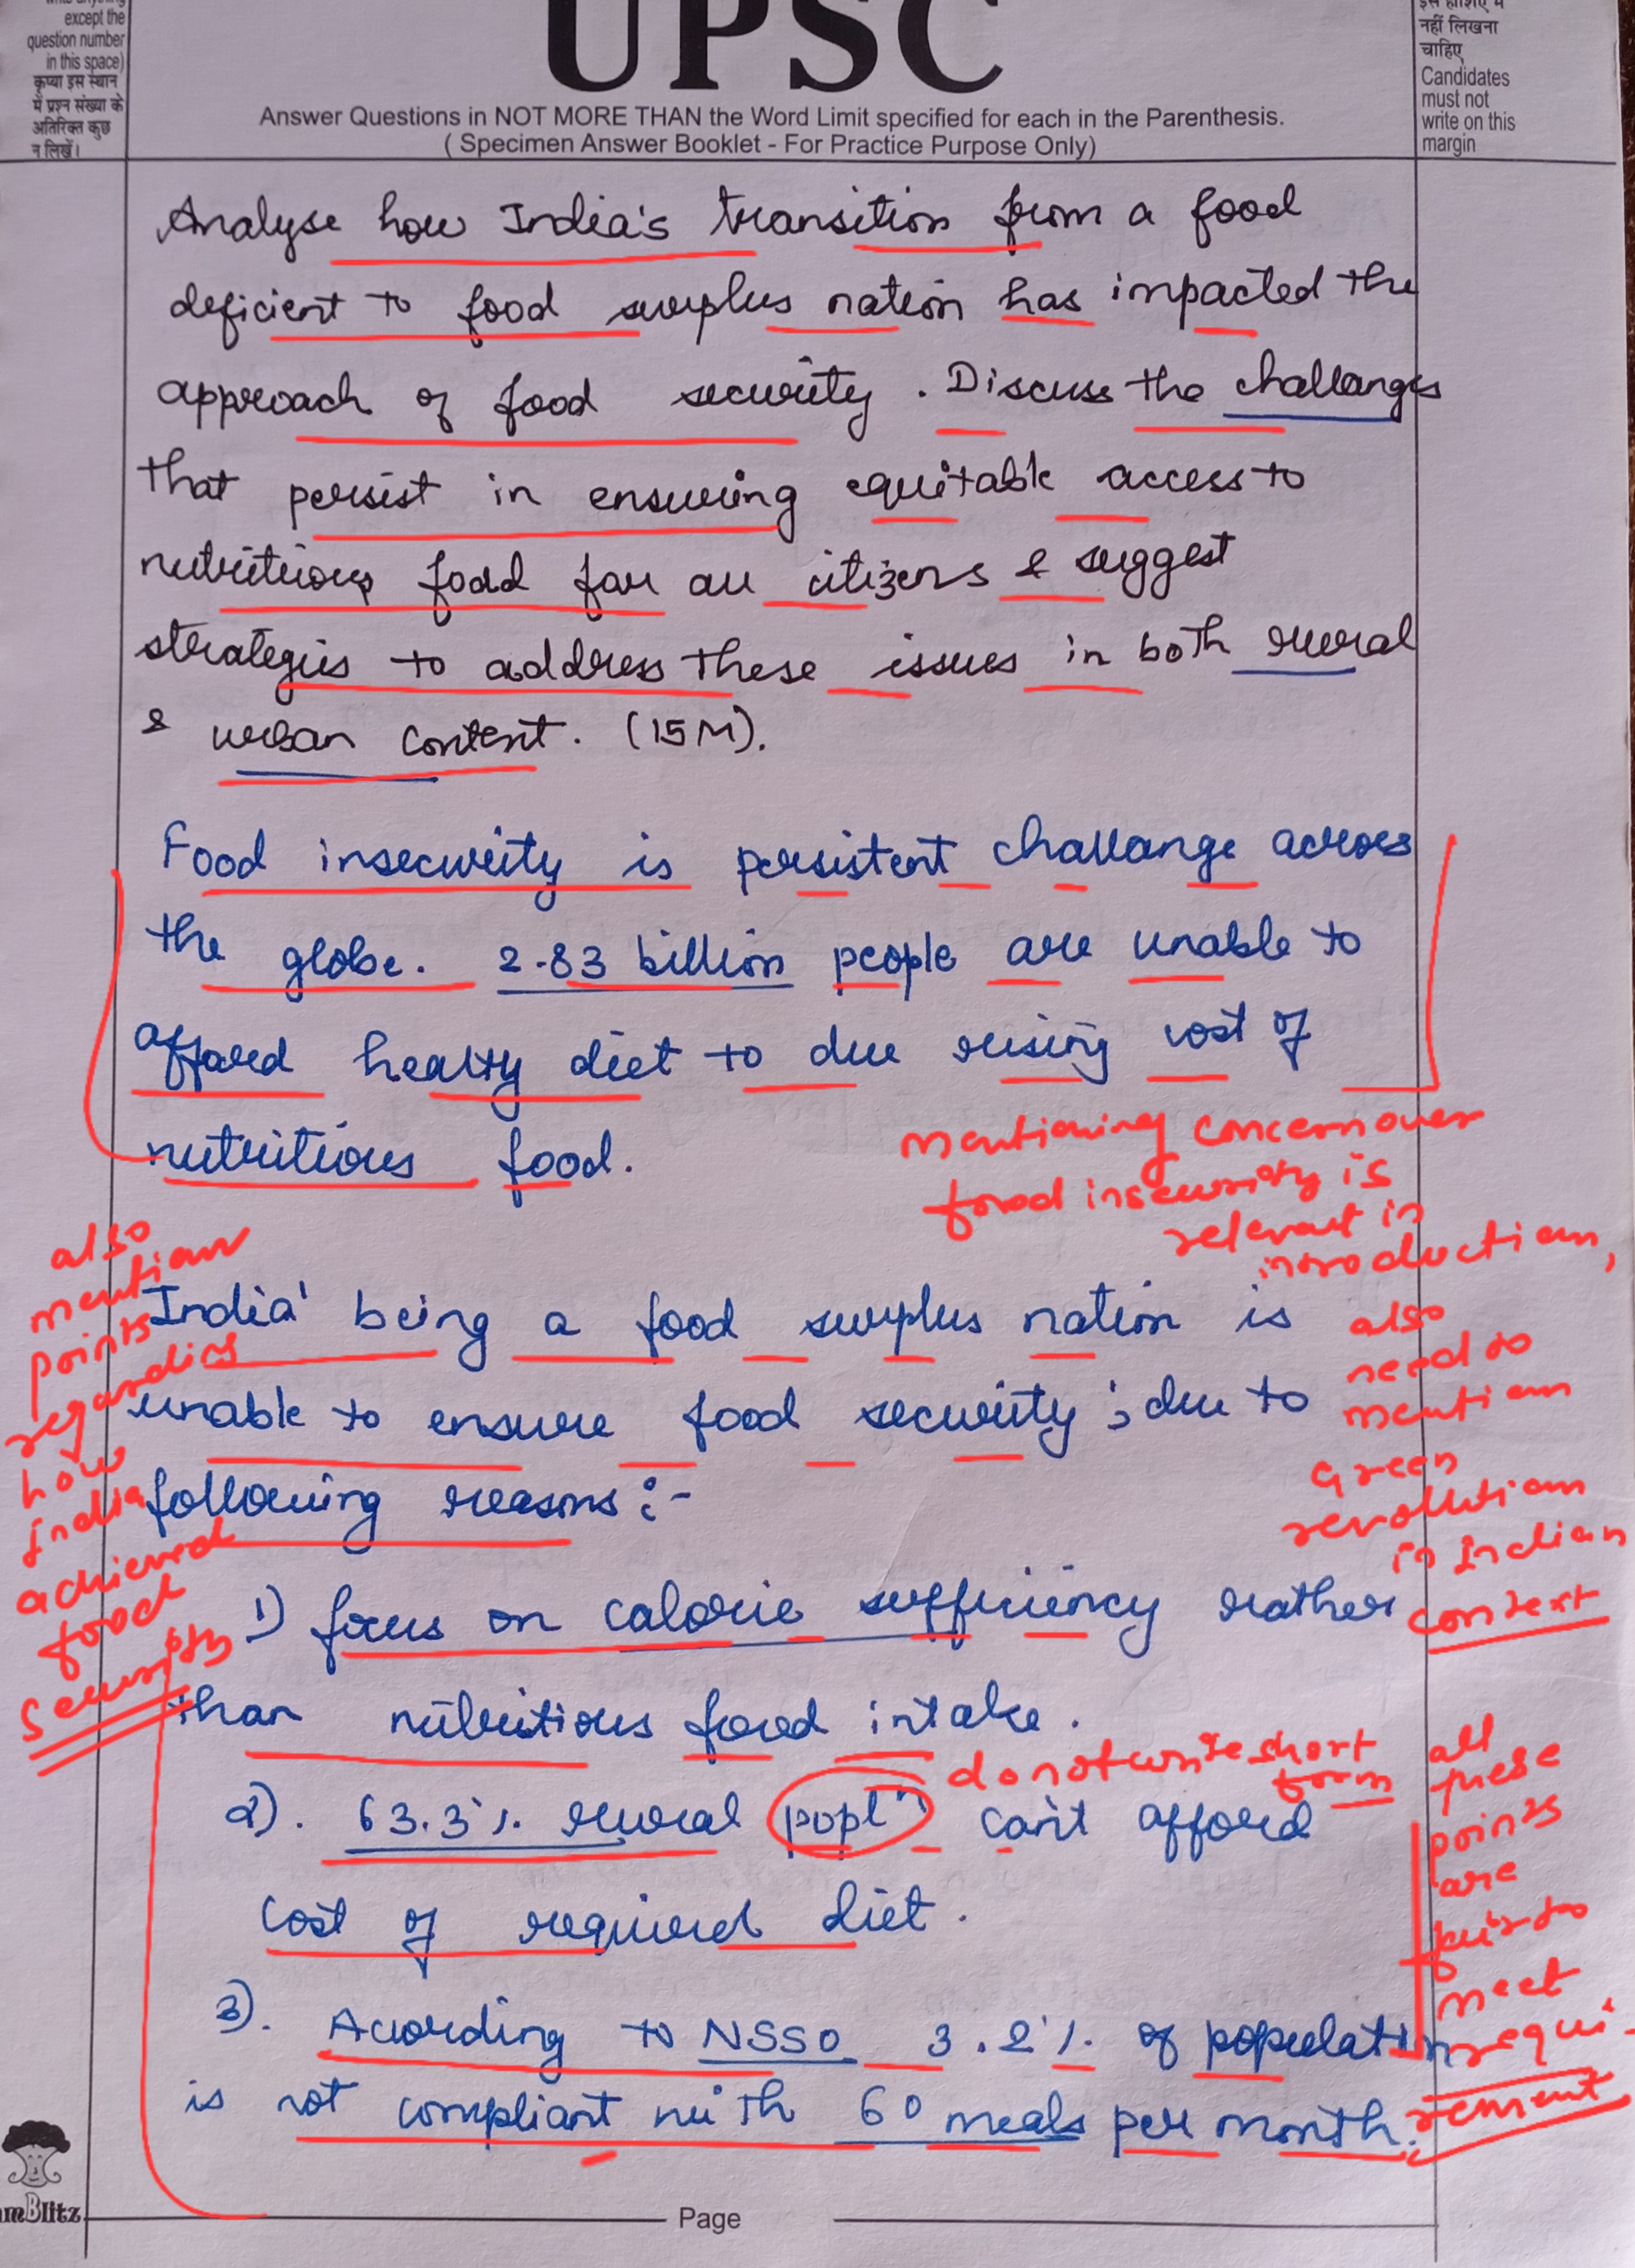 except the
question number
in this space)
कृप्या इस स्थान
में प्रश्न संख्या के
अतिरिक्त कुछ
न लिखें।
UPSC
Answer Questions in NOT MORE THAN the Word Limit specified for each in the Parenthesis.
( Specimen Answer Booklet - For Practice Purpose Only)
नहीं लिखना
चाहिए
Candidates
must not
write on this
margin
Analyse how India's transition from a food
deficient to food surplus nation has impacted the
approach of food security. Discuss the challanges
that persist in ensuring equitable access to
nutritious food for all citizens & suggest
strategies to address these issues in both rural
& urban content. (15M).
Food insecurity is persistent challange across
the globe. 2.83 billion people are unable to
afford healty diet to due rising cost of
nutritious food.
mentioning concern over
food insecurity is
relevant in
introduction,
also
need to
mention
Green
revolution
in Indian
context
also
mention
points
regarding
how
India
achieved
food
security
India' being a food surplus nation is
unable to ensure food security; due to
following reasons:-
1) focus on calorie sufficiency rather
than nutritious food intake.
do not write short
form
2). 63.3% rural popl^n can't afford
cost of required diet.
3). According to NSSO 3.2% of population
is not compliant with 60 meals per month.
all
these
points
are
fair to
meet
requi-
rement
mBlitz
Page